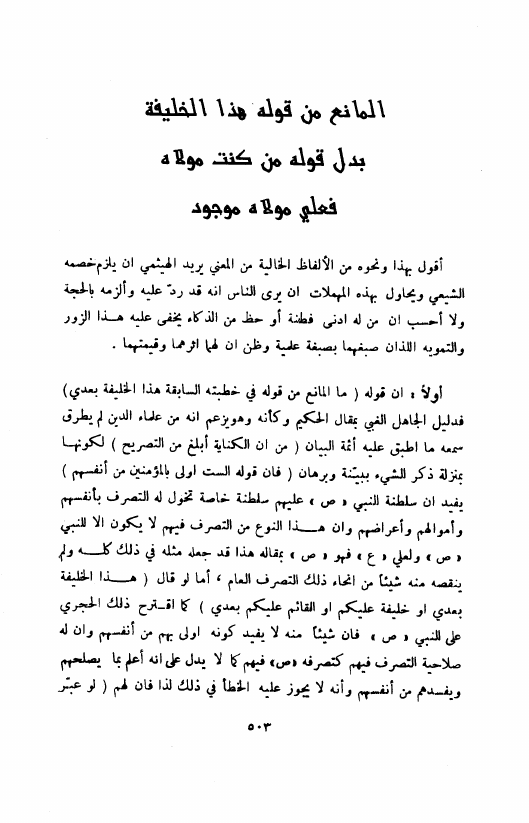 المانع من قوله هذا الخليفة
بدل قوله من كنت مولاه
فعلي مولاه موجود
أقول بهذا ونحوه من الألفاظ الخالية من المعني يريد الهيثمي ان يلزم خصمه
الشيعي ويحاول بهذه المهملات ان يرى الناس انه قد ردّ عليه وألزمه بالحجة
ولا أحسب ان من له ادنى فطنة أو حظ من الذكاء يخفى عليه هـذا الزور
والتمويه اللذان صبغهما بصبغة علمية وظن ان لهما اثرهما وقيمتهما .
أولاً : ان قوله ( ما المانع من قوله في خطبته السابقة هذا الخليفة بعدي)
فدليل الجاهل الغبي بمقال الحكيم وكأنه وهويزعم انه من علماء الدين لم يطرق
سمعه ما اطبق عليه أئمة البيان ( من ان الكناية أبلغ من التصريح ) لكونهـا
بمنزلة ذكر الشيء ببيّنة وبرهان ( فان قوله الست اولى بالمؤمنين من أنفسهم )
يفيد ان سلطنة النبي « ص » عليهم سلطنة خاصة تخول له التصرف بأنفسهم
وأموالهم وأعراضهم وان هـــذا النوع من التصرف فيهم لا يكون الا للنبي
« ص » ولعلي « ع » فهو « ص » بمقاله هذا قد جعله مثله في ذلك كلـــه ولم
ينقصه منه شيئاً من انحاء ذلك التصرف العام ، أما لو قال ( هـــذا الخليفة
بعدي او خليفة عليكم او القائم عليكم بعدي ) كما اقـترح ذلك الحجري
على النبي « ص » فان شيئاً منه لا يفيد كونه اولى بهم من أنفسهم وان له
صلاحية التصرف فيهم كتصرفه «ص» فيهم كما لا يدل على انه أعلم بما يصلحهم
ويفسدهم من أنفسهم وأنه لا يجوز عليه الخطأ في ذلك لذا فان لهم ( لو عبّر
٥٠٣